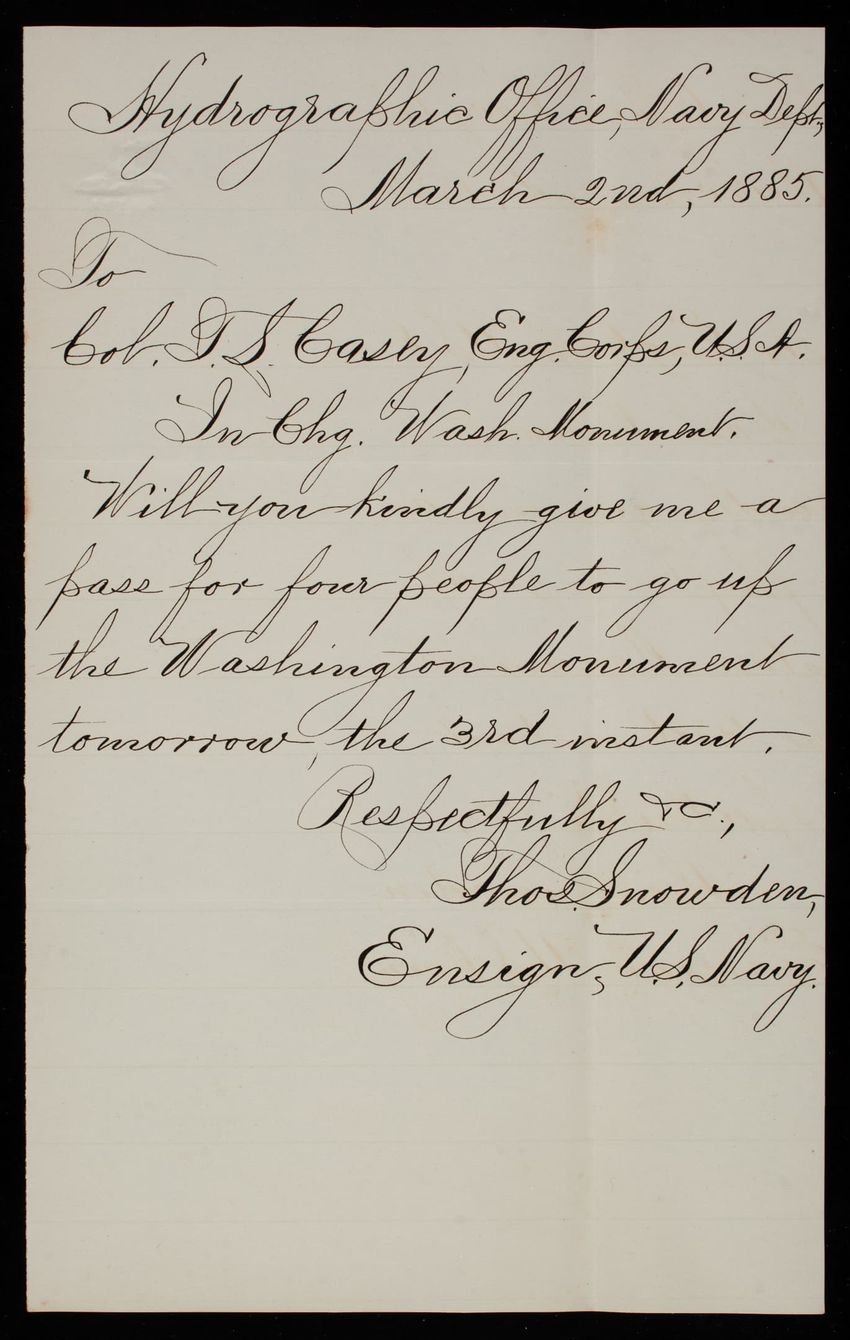 Hydrographic Office, Navy Dept,
March 2nd, 1885.
To
Col. T. S. Casey, Eng. Corps, U.S.A.
In Chg. Wash. Monument.
Will you kindly give me a
pass for four people to go up
the Washington Monument
tomorrow, the 3rd instant.
Respectfully &c.,
Thos. Snowden,
Ensign, U.S. Navy.